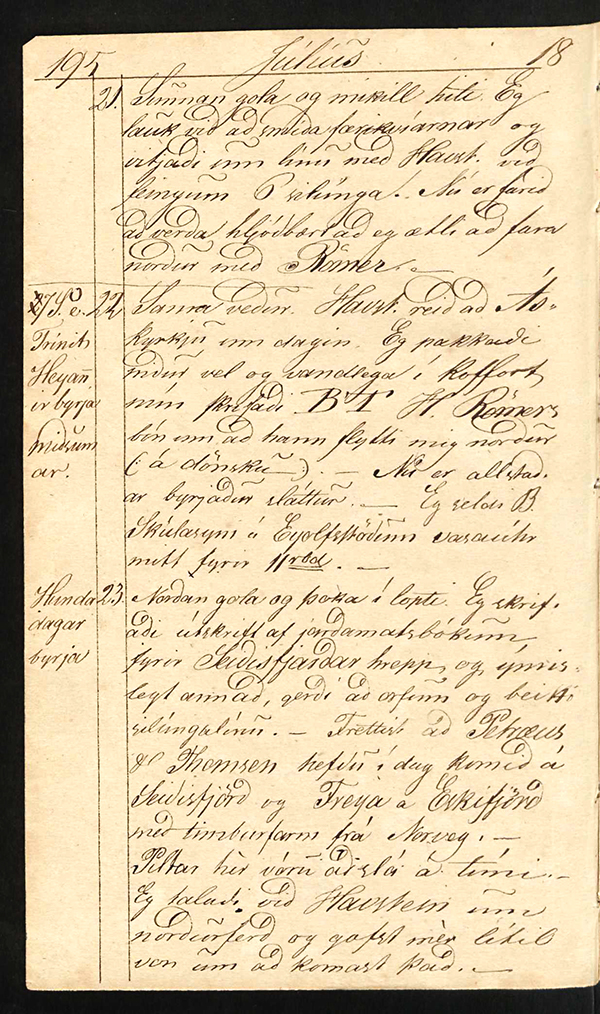 195 Júlíus 18
21. Sunnan gola og mikill hiti. Eg
lauk við að smíða færikvíarnar og
vitjaði um línu með Havst. við
feingum 6 silúnga. Nú er farið
að verða hljóðbært að eg ætli að fara
norður með Römer. –
7 S. e. Trinit.
Heyannir byrja
miðsumar.
22 Sama veður. Havst. reið að Ás-
kyrkju um dagin. Eg pakkaði
niður vel og vandlega í koffort
min skrifaði BT H. Römers
bón um að hann flytti mig norður
(: á dönsku – :). – Nú er allstað-
ar byrjaður sláttur. – Eg seldi B.
Skúlasyni á Eyolfsstöðum vasaúhr
mitt fyrir 11 rbd. –
Hunda
dagar
byrja
23. Norðan gola og þoka í lopti. Eg skrif-
aði útskrift af jarðamatsbókinni
fyrir Seidisfjarðar hrepp, og ýmis-
legt annað, gerði að orfum og beitti
silúngalínu. – Frettist að Petræus
& Thomsen hefðu í dag komið á
Seidisfjörð og Freya a Eskifjörð
með timburfarm frá Norveg. –
Piltar hèr vóru að slá á túni. –
Eg talaði við Havstein um
norðurferð og gafst mèr lítil
von um að komast það. –